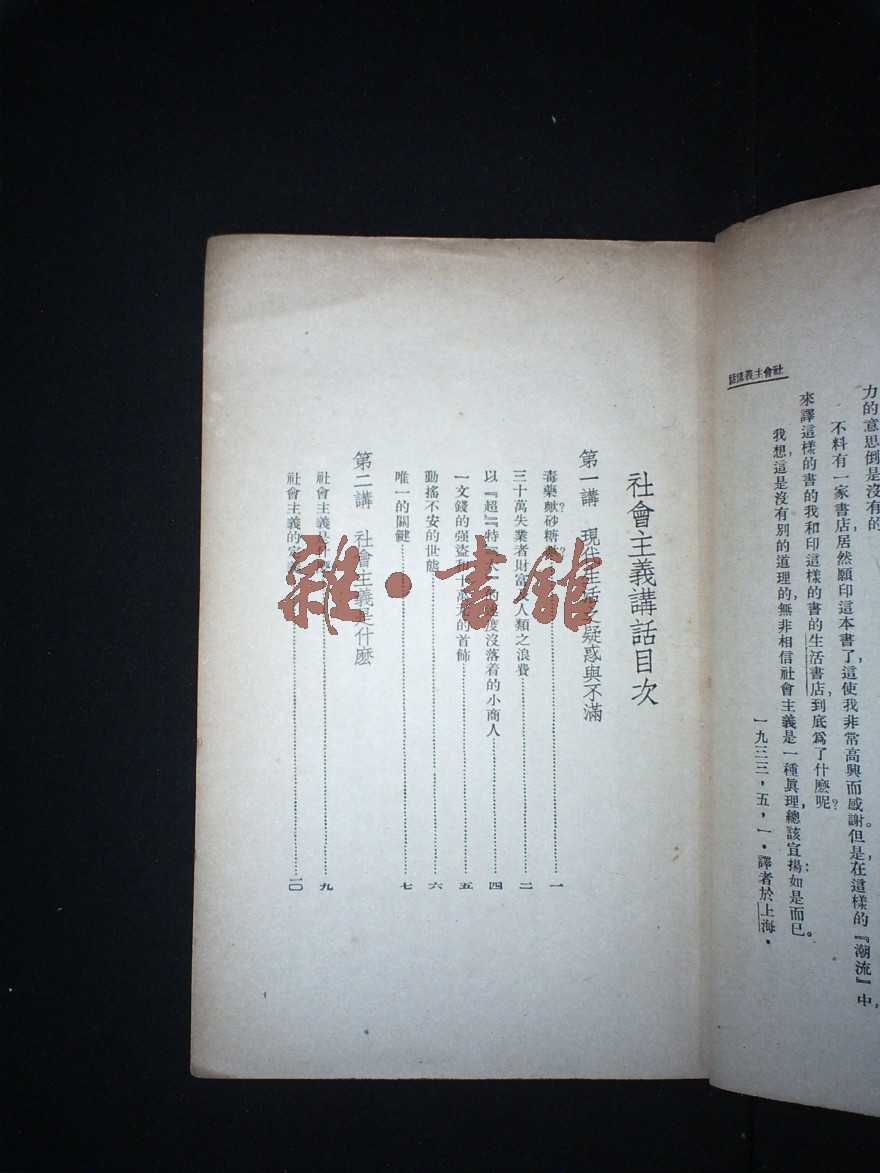 社會主義講話
力的意思倒是沒有的
不料有一家書店,居然願印這本書了,這使我非常高興而感謝。但是,在這樣的『潮流』中,
來譯這樣的書的我和印這樣的書的生活書店,到底爲了什麽呢?
我想,這是沒有別的道理的,無非相信社會主義是一種眞理,總該宣揚;如是而已。
一九三三,五,一.譯者於上海.
社會主義講話目次
第一講 現代生活之疑惑與不滿
毒藥歟?砂糖歟?
一
三十萬失業者財富人類之浪費
二
以『超』『特 度沒落着的小商人
四
一文錢的强盜 萬元的首飾
五
動搖不安的世態
六
唯一的關鍵
七
第二講 社會主義是什麽
社會主義是什麽
九
社會主義的定
一〇
雜·書館